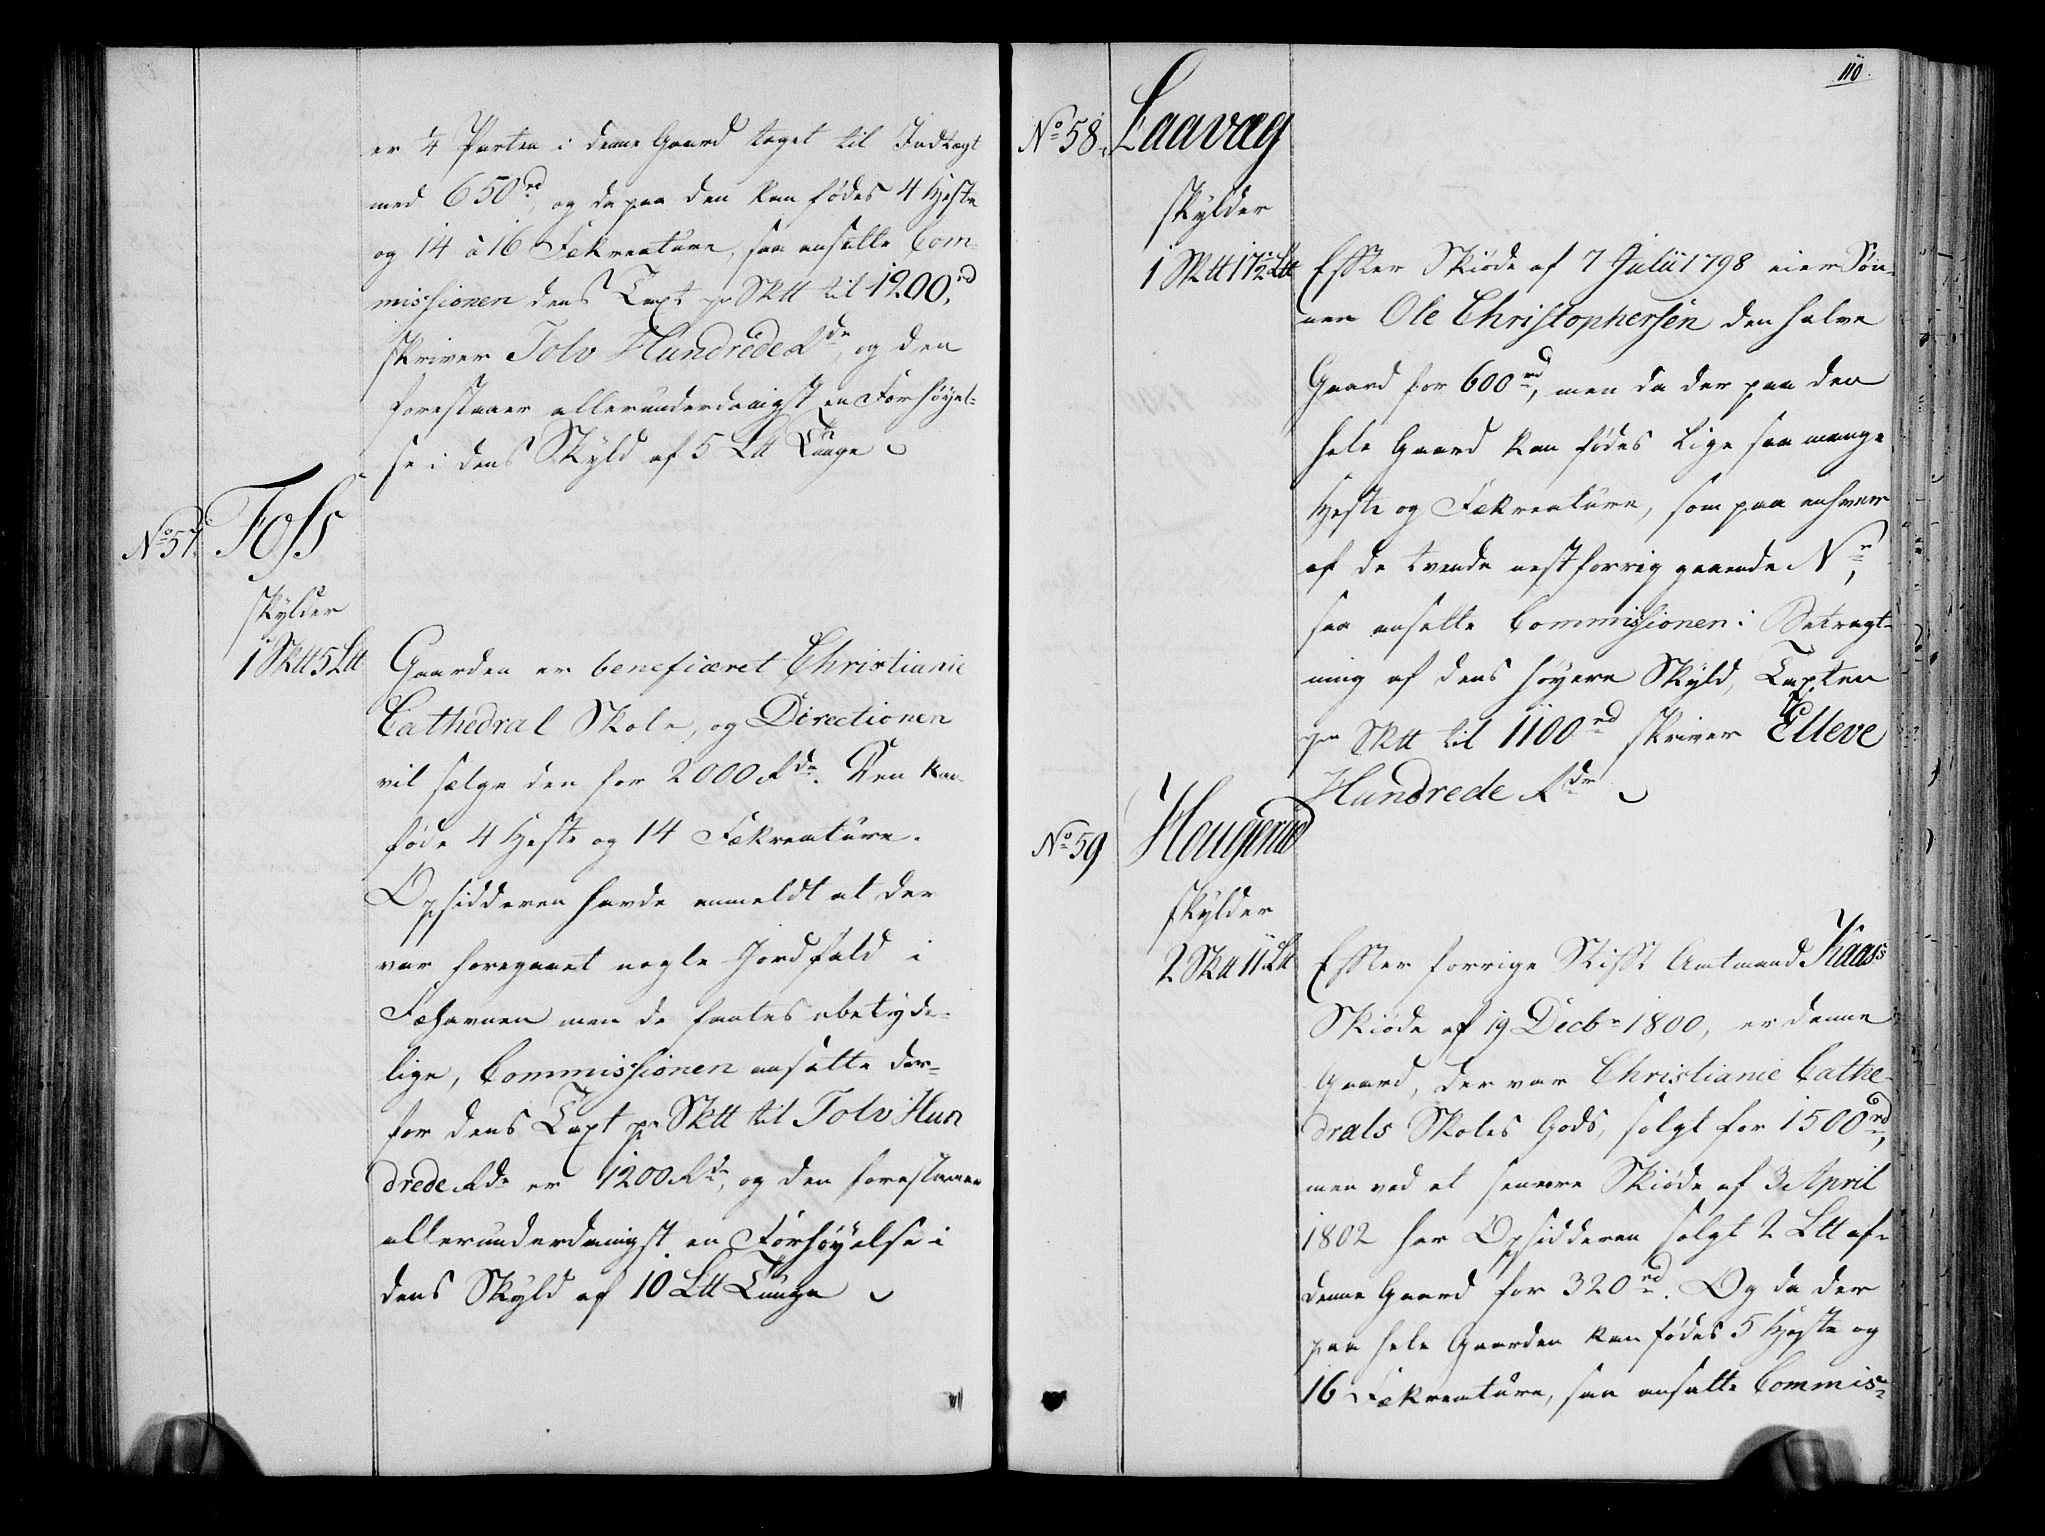 er 1/4 Parten i denne Gaard taget til Indtægt
med 650rd, og da paa den kan fødes 4 Heste
og 14 à 16 Fækreature, saa ansatte Com-
missionen dens Taxt pr Sktt til 1200rd
skriver Tolv Hundrede Rdr, og den
forestaaer allerunderdanigst en Forhøyel-
se i dens Skyld af 5 Ltt Tunge
No 57. Foss
skylder
1 Sktt 5 Ltt
Gaarden er beneficeret Christianie
Cathedral Skole, og Directionen
vil sælge den for 2000 Rdr. Den kan
føde 4 Heste og 14 Fækreature.
Opsidderen havde anmeldt at der
var foregaaet nogle Jordfald i
Fæhavnen men de fantes ubetyde-
lige, Commissionen ansatte der-
for dens Taxt pr Sktt til Tolv Hun
drede Rdr er 1200 Rdr, og den forestaaer
allerunderdanigst en Forhøyelse i
dens Skyld af 10 Ltt Tunge
110.
No 58. Laavæg
skylder
1 Sktt 17 1/2 Ltt
Efter Skiøde af 7 Julii 1798 eier Søn-
nen Ole Christophersen den halve
Gaard for 600rd, men da der paa den
hele Gaard kan fødes lige saa mange
Heste og Fækreature, som paa enhver
af de tvende nestforrig gaaende Nr,
saa ansatte Commissionen i Betragt-
ning af dens høyere Skyld, Taxten
pr Sktt til 1100rd skriver Elleve
Hundrede Rdr
No 59 Haugerud
skylder
2 Sktt 11 Ltt
Efter forrige Stift Amtmand Kaass
Skiøde af 19 Decbr 1800, er denne
Gaard, der var Christianie Cathe-
drals Skoles Gods, solgt for 1500rd,
men ved et senere Skiøde af 3 April
1802 har Opsidderen solgt 2 Ltt af
denne Gaard for 320rd. Og da der
paa hele Gaarden kan fødes 5 Heste og
16 Fækreature, saa ansatte Commis-